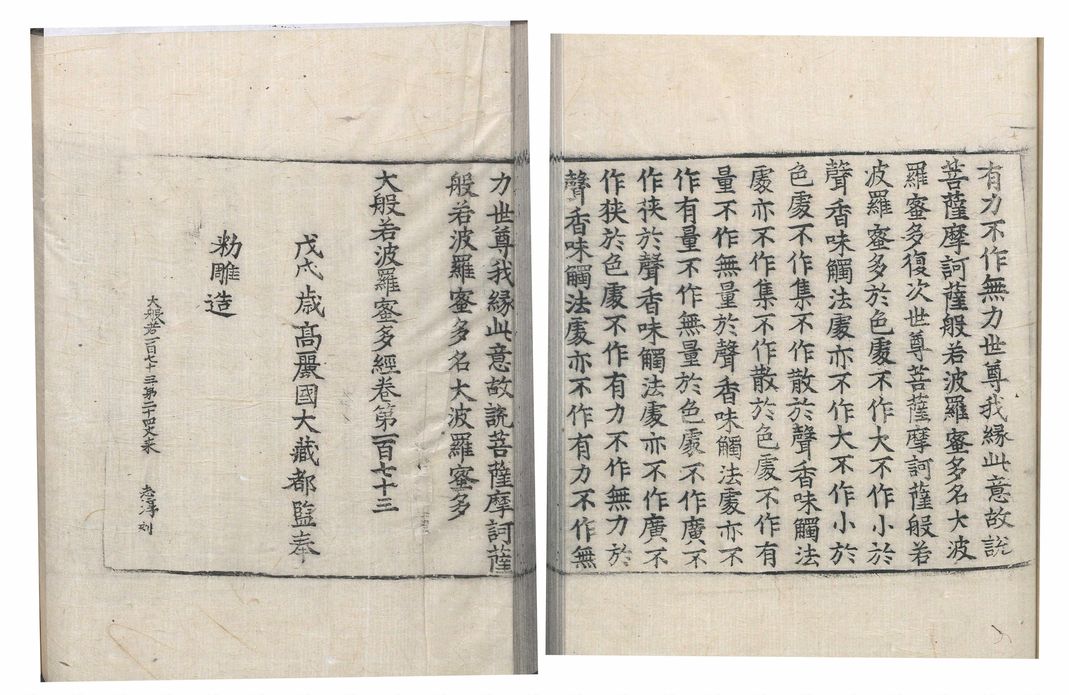 有力不作無力世尊我緣此意故說
菩薩摩訶薩般若波羅蜜多名大波
羅蜜多復次世尊菩薩摩訶薩般若
波羅蜜多於色處不作大不作小於
聲香味觸法處亦不作大不作小於
色處不作集不作散於聲香味觸法
處亦不作集不作散於色處不作有
量不作無量於聲香味觸法處亦不
作有量不作無量於色處不作廣不
作狹於聲香味觸法處亦不作廣不
作狹於色處不作有力不作無力於
聲香味觸法處亦不作有力不作無
力世尊我緣此意故說菩薩摩訶薩
般若波羅蜜多名大波羅蜜多
大般若波羅蜜多經卷第一百七十三
戊戌歲高麗國大藏都監奉
勑雕造
大般若一百七十三第二十四丈
刻